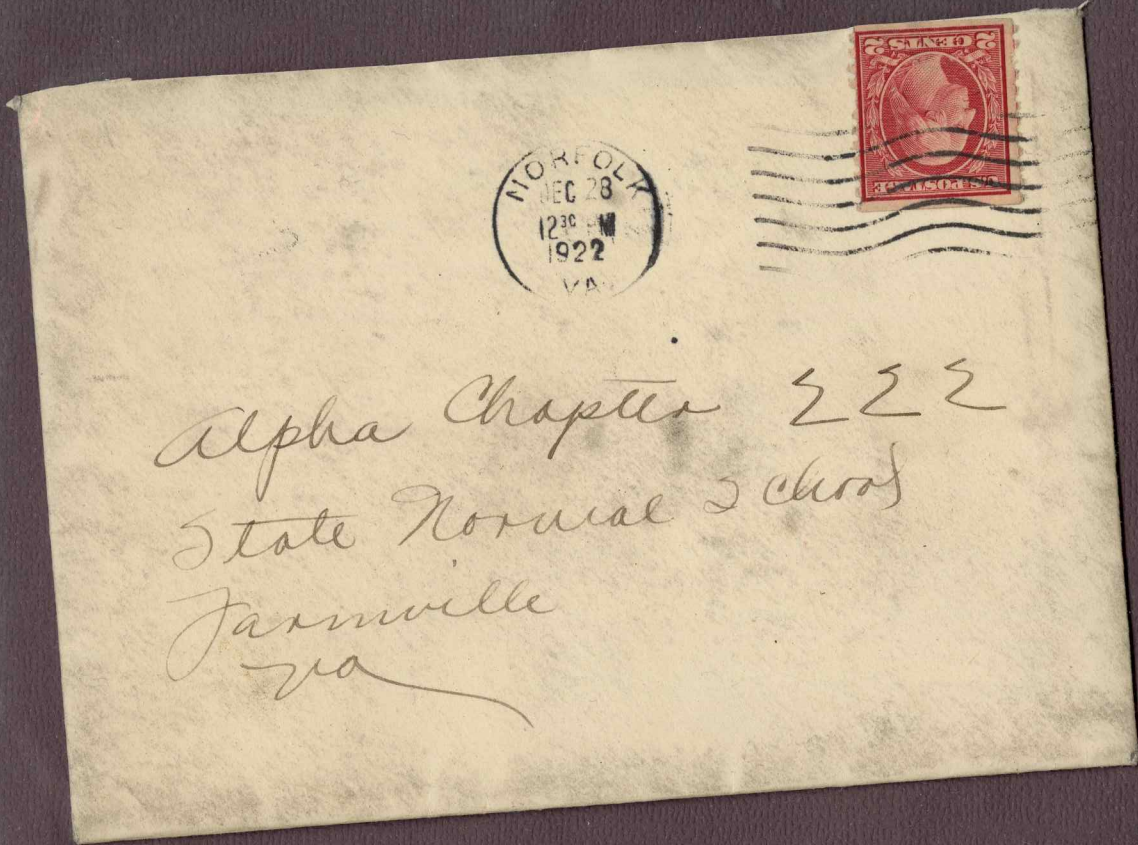 2 CENTS 2
U.S. POSTAGE
NORFOLK
DEC 28
12 30 PM
1922
VA
Alpha Chapter Σ Σ Σ
State Normal School
Farmville
Va